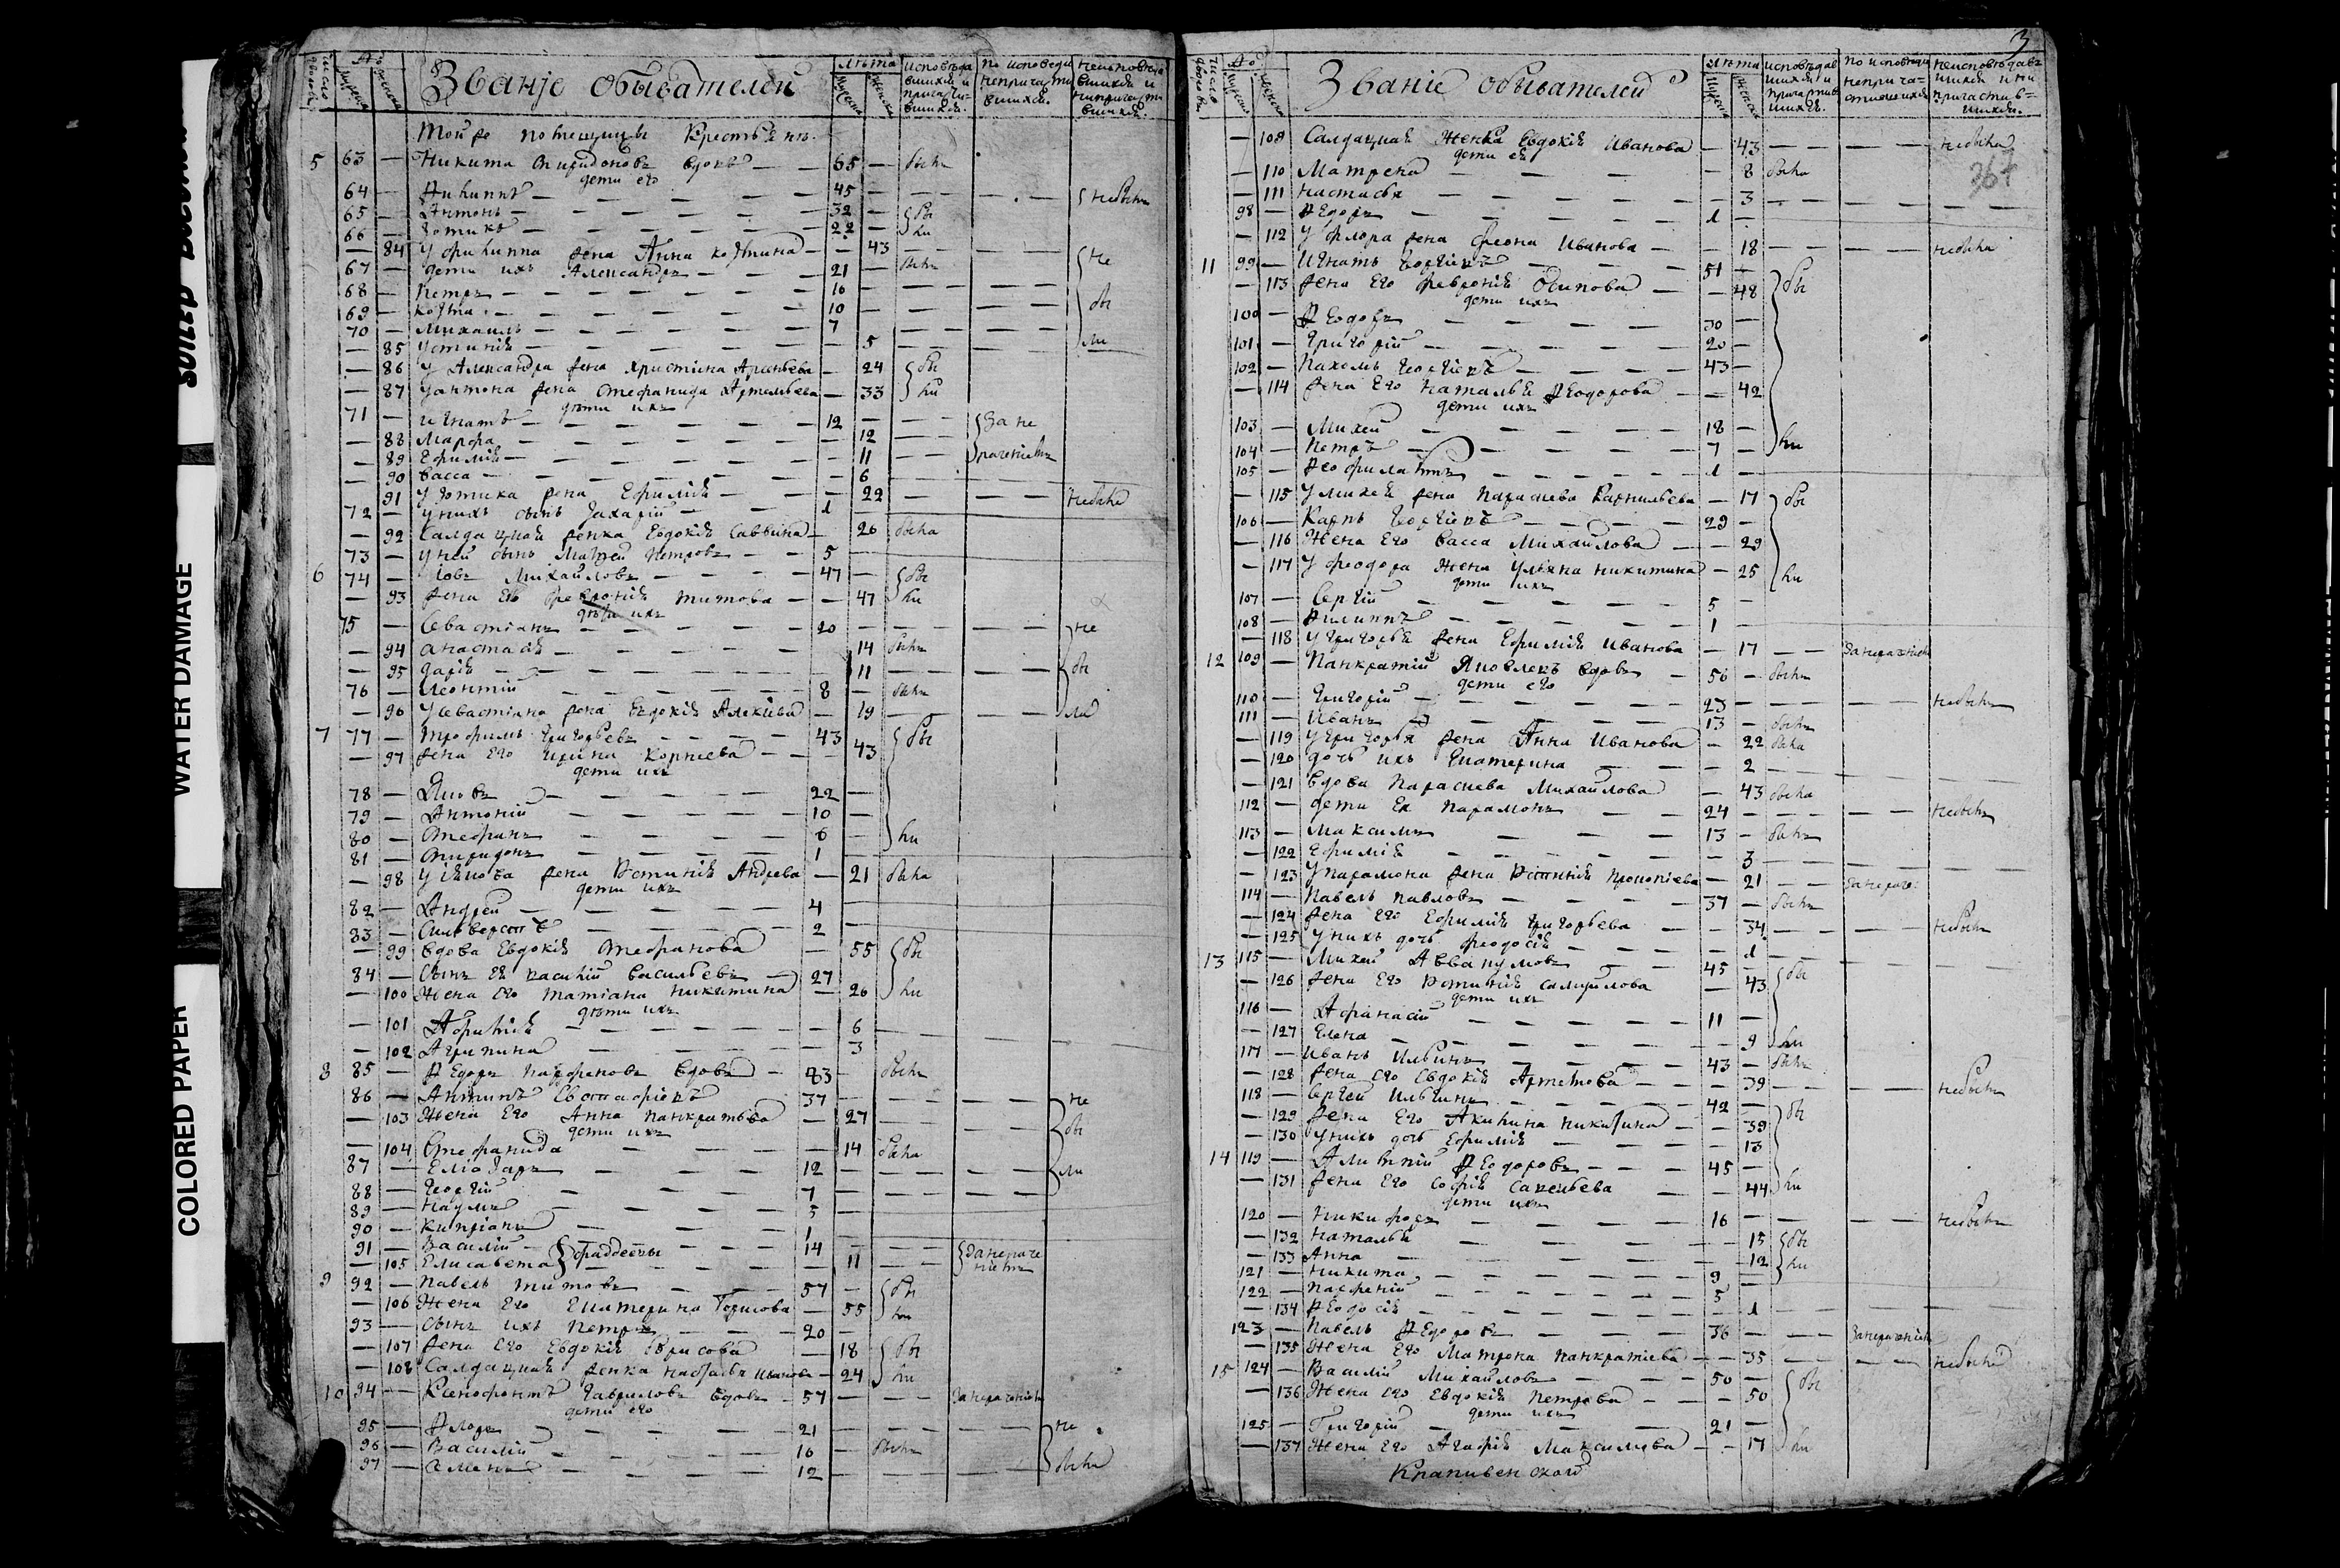 WATER DAMAGE
COLORED PAPER
число дворовъ
мужска
женска
Званіе обывателей
лѣта
исповѣдавшихся и причастившихся.
по исповѣди непричастившихся.
неисповѣдавшихся и непричастившихся.
Той же помещицы Крестьяне.
5 63 — Никита Спиридоновъ вдовъ — 65 — былъ
дети его
64 — Филиппъ — 45 — небыли
65 — Антонъ — 32 — бы
66 — Зотикъ — 22 — ли
— 84 У Филиппа жена Анна Козмина — 43 не
67 — дети ихъ Александръ — 21 — былъ
68 — Петръ — 16 бы
69 — Козма — 10
70 — Михаилъ — 7
— 85 Устинія — 5 ли
— 86 У Александра жена Христина Арсеньева — 24 бы
— 87 У Антона жена Стефанида Артемьева — 33 ли
дѣти ихъ
71 — Игнатъ — 12 — За не
— 88 Марфа — 12
— 89 Ефимія — 11 раченіемъ
— 90 Васса — 6
— 91 У Зотика жена Ефимія — 22 небыла
72 — У нихъ сынъ Захарій — 1
— 92 Салдацкая женка Евдокія Саввина — 26 была
73 — У ней сынъ Матвей Петровъ — 5
6 74 — Іовъ Михайловъ — 47 — бы
— 93 жена его Февронія Титова — 47 ли
дѣти ихъ
75 — Севастіанъ — 20 не
— 94 Анастасія — 14 была
— 95 Дарія — 11 бы
76 — Леонтій — 8 — былъ
— 96 У Севастіана жена Евдокія Алексіева — 19 ли
7 77 — Трофимъ Григорьевъ — 43 бы
— 97 жена его Ирина Корнѣева — 43
дети ихъ
78 — Яковъ — 22 —
79 — Антоній — 10 —
80 — Стефанъ — 6 — ли
81 — Спиридонъ — 1
— 98 У Якова жена Устинія Андреева — 21 была
дети ихъ
82 — Андрей — 4
83 — Силверстъ — 2
— 99 Вдова Евдокія Стефанова — 55 бы
84 — Сынъ ея Василій Васильевъ — 27
— 100 Жена его Татіана Никитина — 26 ли
дѣти ихъ
— 101 — 6
— 102 Агрипина — 3
8 85 — Федоръ Парфеновъ вдовъ — 83 — былъ
86 — Антипъ Евстафіевъ 37 — не
— 103 Жена его Анна Панкратьева — 27 бы
дети ихъ
— 104 Стефанида 14 была
87 — Еліазаръ — 12 — ли
88 — Георгій — 7
89 — Наумъ — 5
90 — Кипріанъ — 1
91 — Василій — 14 Фаддеевы
— 105 Елисавета — 11 Занераченіемъ
9 92 — Павелъ Титовъ — 57 — бы
— 106 Жена его Екатерина Борисова — 55 ли
93 — Сынъ ихъ Петръ — 20 —
— 107 жена его Евдокія Борисова — 18 бы
— 108 Салдацкая женка Наталья Иванова — 24 ли
10 94 — Ксенофонтъ Гавриловъ вдовъ — 57 — Занераченіемъ
дети его
95 — Флоръ — 21 не
96 — Василій — 16 — былъ
97 — Семенъ — 12 были
3
число дворовъ
мужска
женска
Званіе обывателей
лѣта
исповѣдавшихся и причастившихся.
по исповѣди непричастившихся
неисповѣдавшихся и непричастившихся.
— 108 Салдацкая Женка Евдокія Иванова — 43 — небыла
267
дети ея
— 110 Матрена — 8 была
— 111 Настасья — 3
98 — Федоръ — 1 —
— 112 У Флора жена Фекла Иванова — 18 — небыла
11 99 — Игнатъ Георгіевъ — 51 —
— 113 жена его Февронія Осипова — 48 бы
дети ихъ
100 — Феодоръ — 30 —
101 — Григорій — 20 —
102 — Пахомъ Георгіевъ — 43 —
— 114 жена его Наталья Феодорова — 42
дети ихъ
103 — Михей — 18 —
104 — Петръ — 7 — ли
105 — Феофилактъ — 1 —
— 115 У Михея жена Параскева Карнильева — 17 бы
106 — Карпъ Георгіевъ — 29 —
— 116 Жена его Васса Михайлова — 29
— 117 У Феодора жена Ульяна Никитина — 25 ли
дети ихъ
107 — Сергій — 5 —
108 — Филиппъ — 1 —
— 118 У Григорья жена Ефимія Иванова — 17 — Занераченіемъ
12 109 — Панкратій Яковлевъ вдовъ — 56 — былъ
дети его
110 — Григорій — 23 — небылъ
111 — Иванъ — 13 — былъ
— 119 У Григорья жена Анна Иванова — 22 была
— 120 дочь ихъ Екатерина — 2
— 121 Вдова Параскева Михайлова — 43 была
112 — дети ея Парамонъ — 24 — небылъ
113 — Максимъ — 13 — былъ
— 122 Ефимія — 3
— 123 У Парамона жена Устинія Прокопіева — 21 — занерач:
114 — Павелъ Павловъ — 37 — былъ
— 124 жена его Ефимія Григорьева — 34 — небыла
— 125 У нихъ дочь Феодосія — 1
13 115 — Михей Аввакумовъ — 45 — бы
— 126 жена его Устинія Самуилова — 43
дети ихъ
116 — Афанасій — 11 —
— 127 Елена — 9 ли
117 — Иванъ Ильинъ — 43 — былъ
— 128 жена его Евдокія Артемова — 39 — небыла
118 — Сергей Ильинъ — 42 — бы
— 129 жена его Акилина Никитина — 39
— 130 У нихъ дочь Ефимія — 13
14 119 — Алимпій Феодоровъ — 45 —
— 131 жена его Софія Савельева — 44 ли
дети ихъ
120 — Никифоръ — 16 — небылъ
— 132 Наталья — 15 бы
— 133 Анна — 12 ли
121 — Никита — 9 —
122 — Парфеній — 5
— 134 Феодосія — 1
123 — Павелъ Федоровъ — 36 — Занераченіемъ
— 135 Жена его Матрона Панкратіева — 35 — небыла
15 124 — Василій Михайловъ — 50 — бы
— 136 Жена его Евдокія Петрова — 50
дети ихъ
125 — Григорій — 21 —
— 137 Жена его Агафія Максимова — 17 ли
Крапивенской